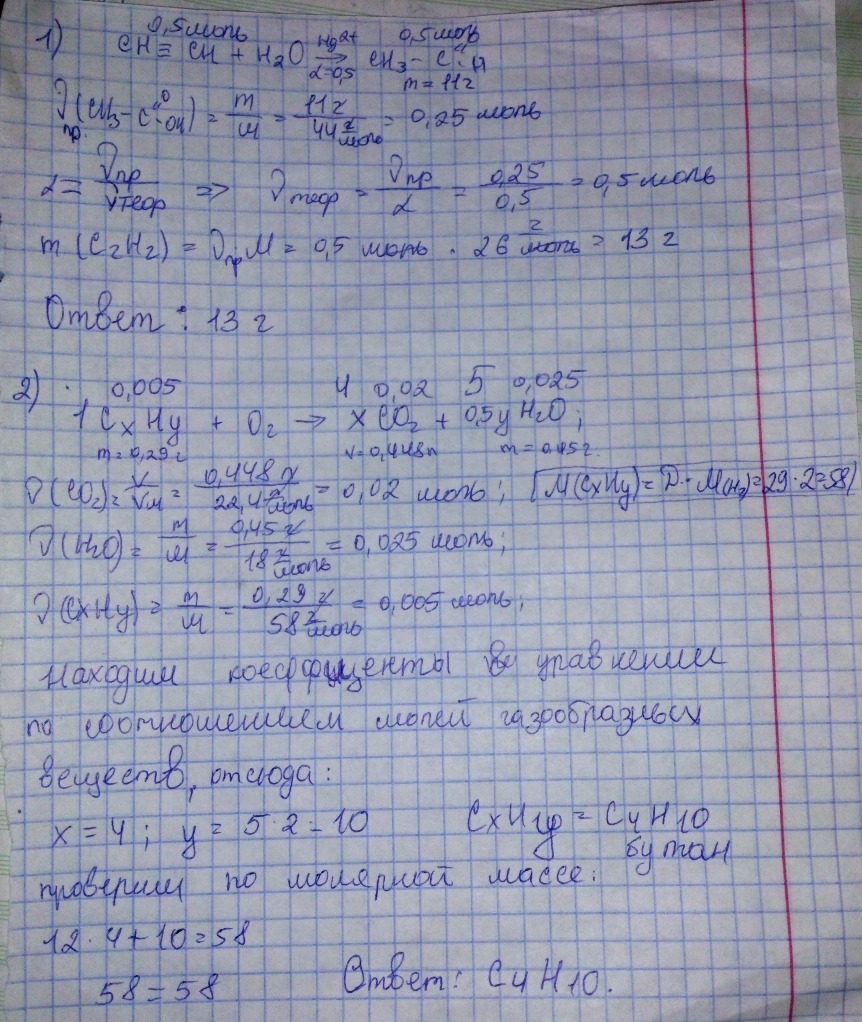 0,5 моль 0,5 моль
1) CH ≡ CH + H2O Hg2+ → α=0,5 CH3 - C = O H
m = 11г
ν пр. (CH3 - C = O OH) = m/M = 11г / 44 г/моль = 0,25 моль
α = νпр / νтеор => νтеор = νпр / α = 0,25 / 0,5 = 0,5 моль
m (C2H2) = νпр M = 0,5 моль · 26 г/моль = 13 г
Ответ: 13 г
2) 0,005 4 0,02 5 0,025
1 CxHy + O2 → xCO2 + 0,5y H2O;
m = 0,29 г v = 0,448л m = 0,45г.
ν(CO2) = V/Vм = 0,448 л / 22,4 л/моль = 0,02 моль; [M(CxHy) = D · M(H2) = 29 · 2 = 58]
ν(H2O) = m/M = 0,45 г / 18 г/моль = 0,025 моль;
ν(CxHy) = m/M = 0,29 г / 58 г/моль = 0,005 моль;
Находим коеффиценты в уравнении
по соотношением молей газообразных
веществ, отсюда:
x = 4; y = 5·2 = 10 CxHy = C4H10
бутан
проверим по молярной массе:
12·4+10=58
58=58 Ответ: C4H10.